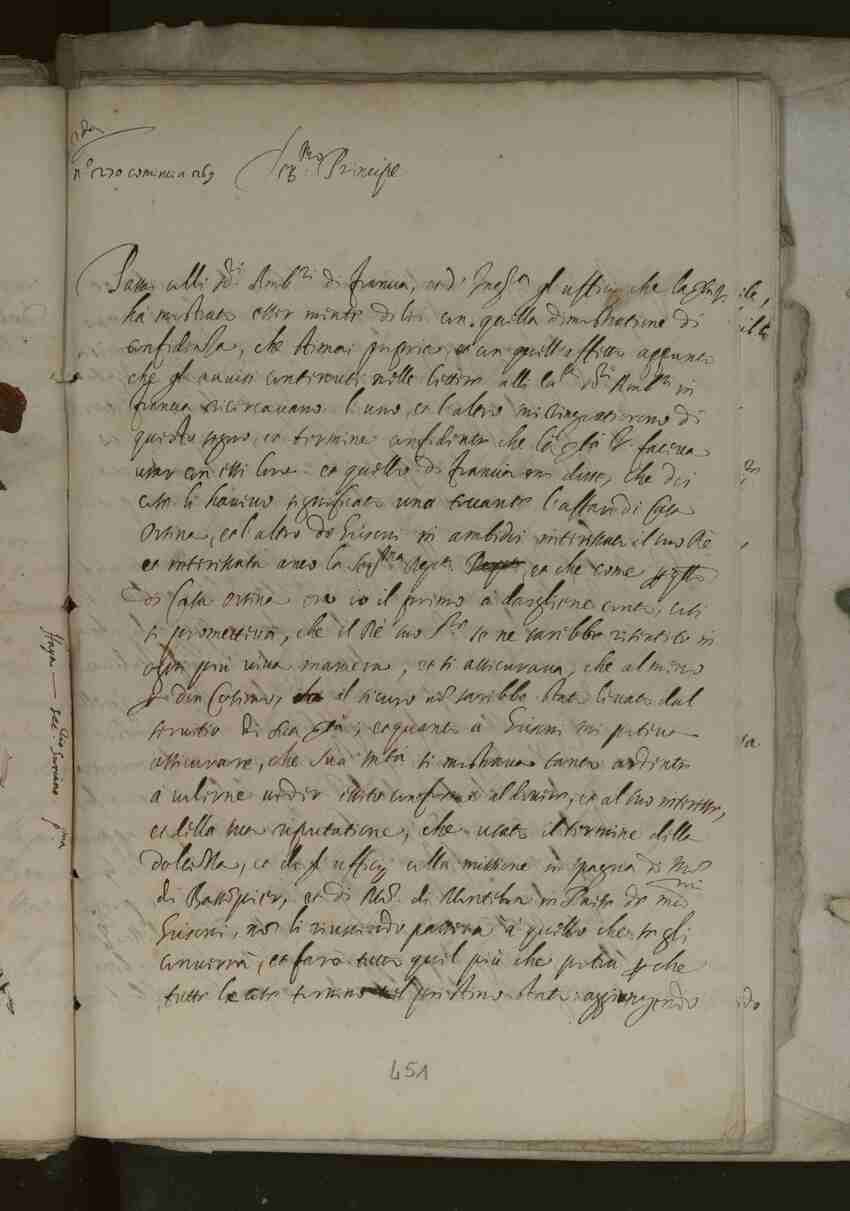 n.o 170 comincia 169
Ser.mo Principe
Passai colli S.ri Amb.ri di Francia, et d'Ingh.a gl'ufficij che la
ha mostrato esser mente di lei con quella dimostratione di
confidenza, che stimai propria, et con quell'effetto appunto
che gl'avvisi contenuti nelle lettere all' Amb.r in
Francia ricercavano. L'uno, et l'altro mi ringratiorono di
questo segno, et termine confidente che la S.tà V. faceva
usar con essi loro et quello di Francia mi disse, che dei
casi li havevo significato uno toccante l'affare di Casa
Ortina, et l'altro de Grisoni in ambidui interessato il suo Rè
et interessata anco la Ser.ma Rep.ca et che come per quello
di Casa Ortina ero io il primo à dargliene conto, così
si prometteva, che il Rè suo S.re se ne sarebbe risentito in
ogni più viva maniera, et si assicurava, che almeno
Don Cosimo, al sicuro nò sarebbe stato levato dal
servitio di sua S.tà; et quanto à Grisoni mi poteva
assicurare, che Sua M.tà si mostrava tanto ardente
a volerne veder esito conforme al dovere, et al suo interesse,
et della sua reputatione, che usato il termine della
dolcezza, et de gl'ufficij colla missione in Spagna di Mons.r
di Bassompier, et di Mons.r di Montholon in Paese de med.mi
Grisoni, non li riuscendo passerà à quello che se gli
converrà, et farà tutto quel più che potrà perche
tutte le cose tornino nel pristino stato: aggiungendo
Haya
Suriano
p.ma
451